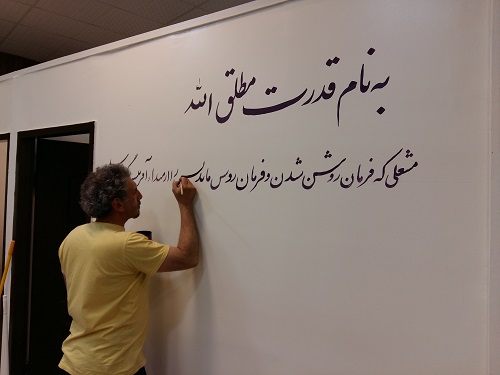 به نام قدرت مطلق الله
مشعلی که فرمان روشن شدن و فرمان روشن ماندنش را از مدار آفرینش